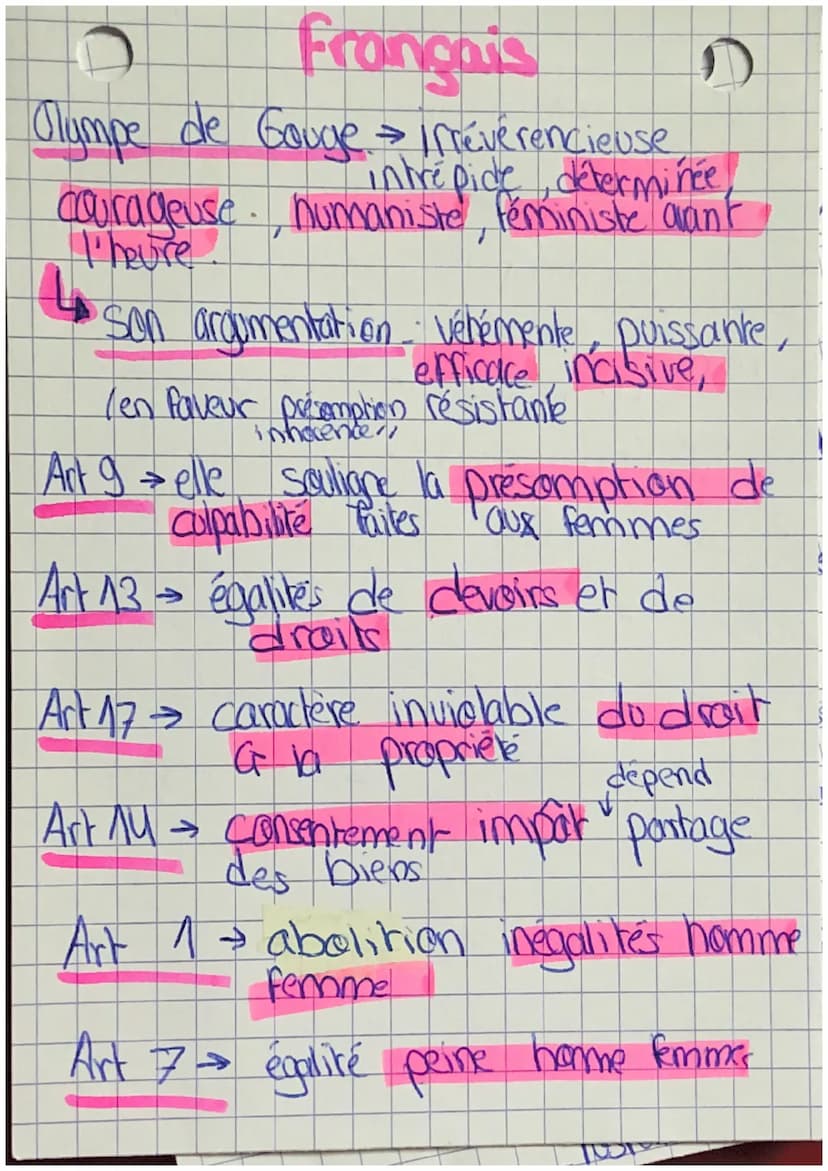 Français
Olympe de Gouge → irrévérencieuse
intrépide, déterminée,
courageuse, humaniste, féministe avant
l'heure.
↳ son argumentation : véhémente, puissante,
efficace, incisive,
(en faveur présomption résistante
inhocence,,
Art 9 → elle souligne la présomption de
culpabilité faites aux femmes
Art 13 → égalités de devoirs et de
droits
Art 17 → caractère inviolable du droit
à la propriété
dépend
Art 14 → consentement impôt ↓ partage
des biens
Art 1 → abolition inégalités homme
femme
Art 7 → égalité peine homme femmes